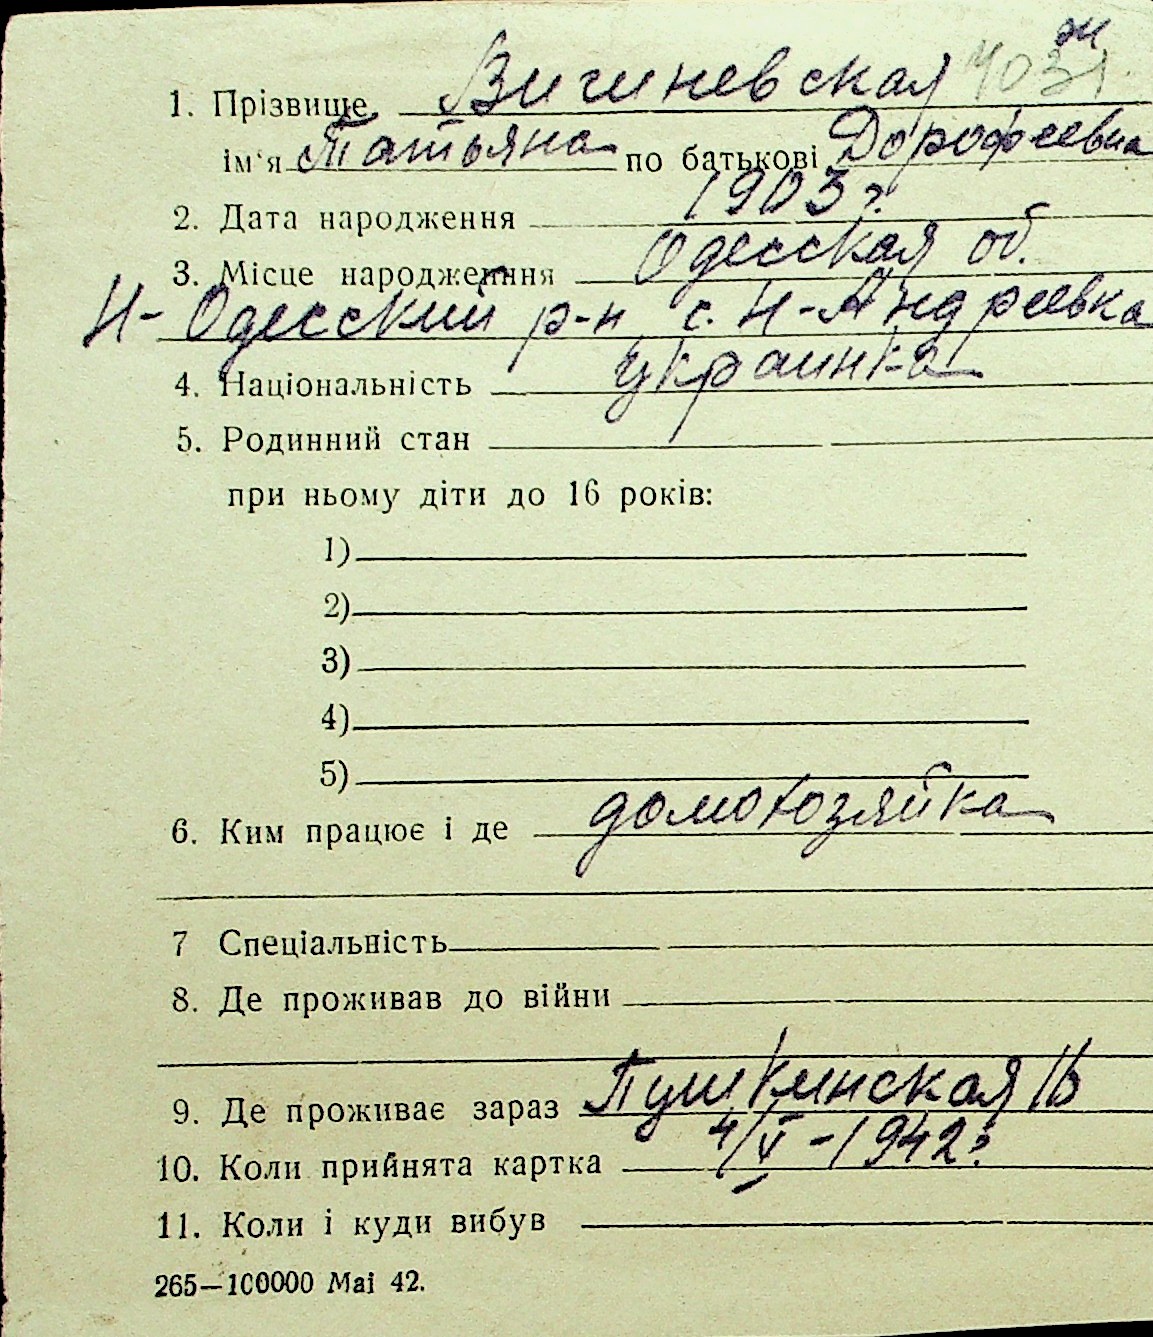 1. Прізвище Вишневская 4031
ім'я Татьяна по батькові Дорофеевна
2. Дата народження 1903 г.
3. Місце народження Одесская об.
Н-Одесский р-н, с. Н-Андреевка
4. Національність украинка
5. Родинний стан
при ньому діти до 16 років:
1)
2)
3)
4)
5)
6. Ким працює і де домохозяйка
7 Спеціальність
8. Де проживав до війни
9. Де проживає зараз Пушкинская
10. Коли прийнята картка 4/V-1942г.
11. Коли і куди вибув
265—100000 Маі 42.